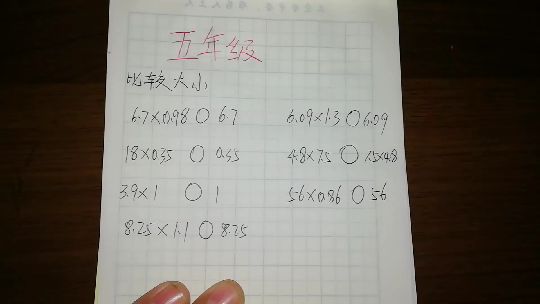 五年级
比较大小
6.7×0.98○6.7 6.09×1.3○6.09
18×0.35○0.35 4.8×7.5○7.5×4.8
3.9×1○1 56×0.86○56
8.25×1.1○8.25